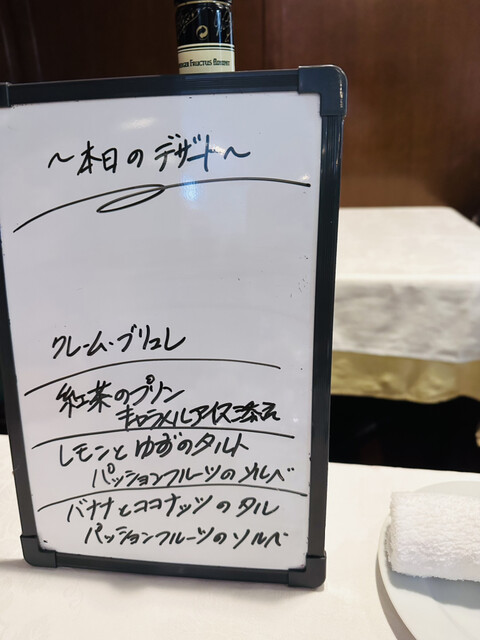 FRUCTUS
～本日のデザート～
クレーム・ブリュレ
紅茶のプリン
キャラメルアイス添え
レモンとゆずのタルト
パッションフルーツのソルベ
バナナとココナッツのタル
パッションフルーツのソルベ